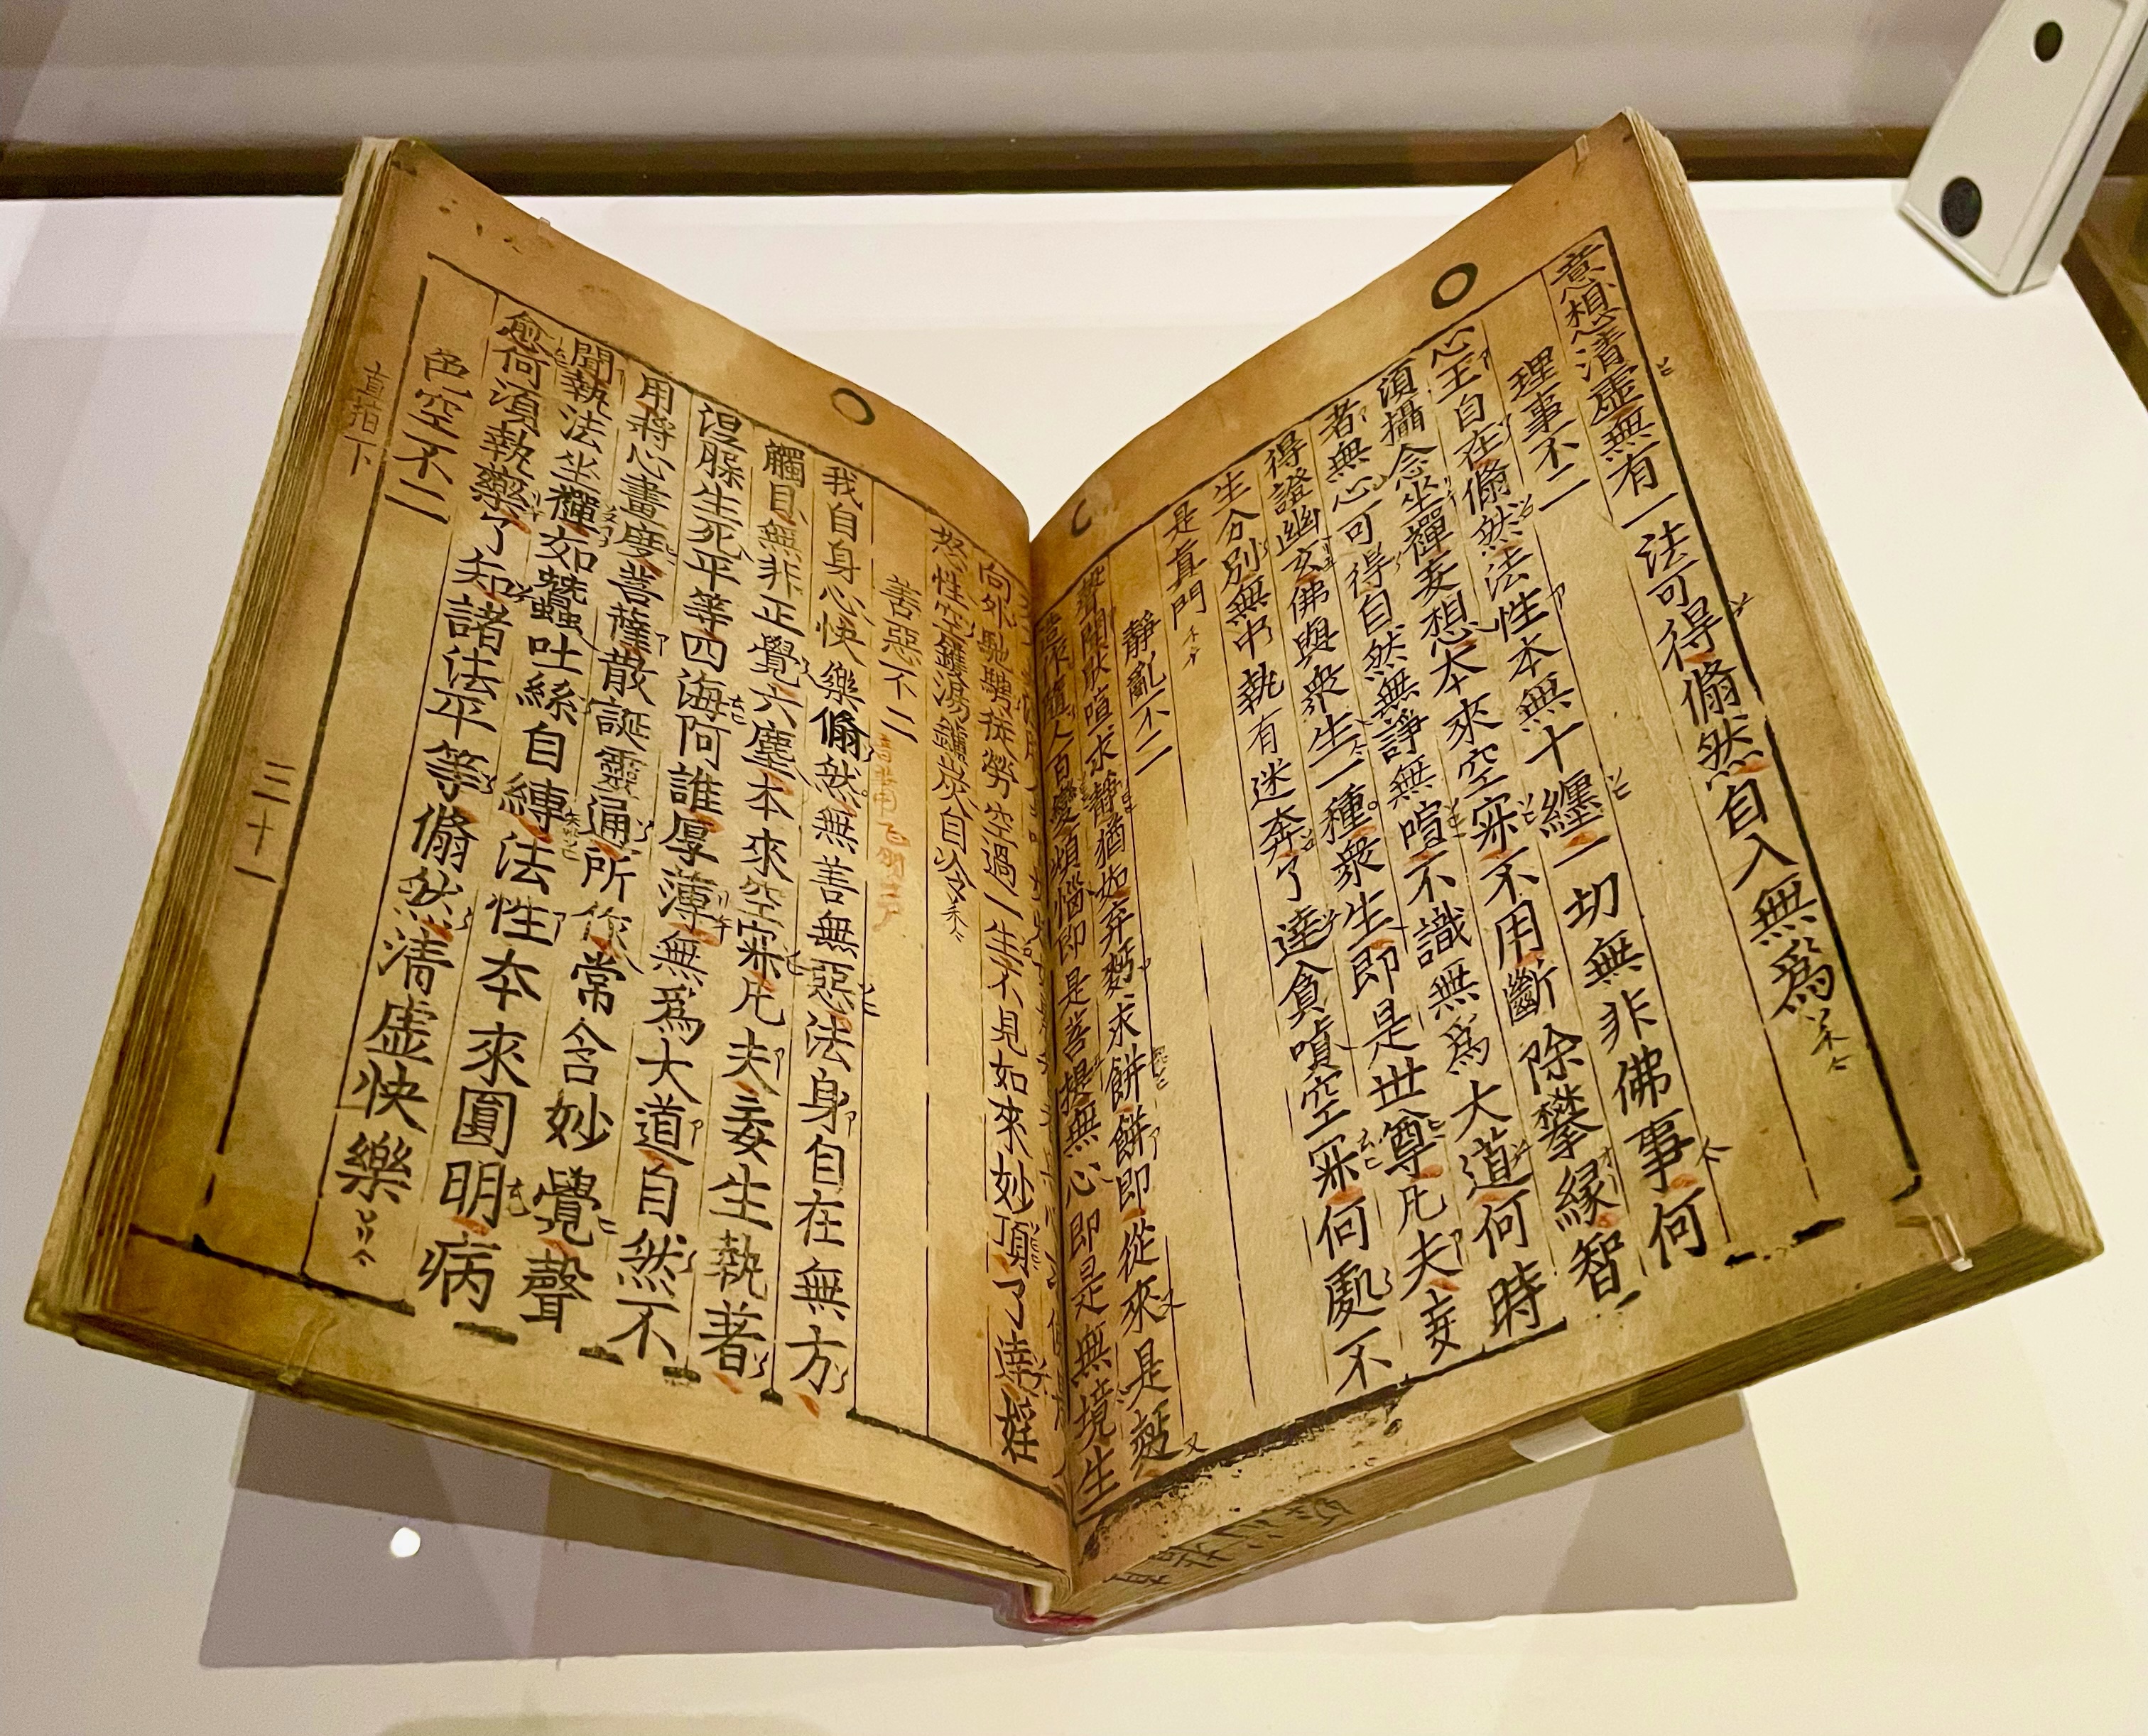 意想清虛無有一法可得翛然自入無爲
理事不二
心王自在翛然法性本無十纏一切無非佛事何
須攝念坐禪妄想本來空寂不用斷除攀緣智
者無心可得自然無諍無喧不識無爲大道何時
得證幽玄佛與衆生一種衆生即是世尊凡夫妄
生分別無中執有迷奔了達貪嗔空寂何處不
是真門
靜亂不二
聲聞猒喧求靜猶如弃麪求餅餅即從來是麪
隨人百變煩惱即是菩提無心即是無境生
向外馳騁徒勞空過一生不見如來妙頂了達婬
怒性空鑊湯鑪炭自冷
善惡不二
我自身心快樂翛然無善無惡法身自在無方
觸目無非正覺六塵本來空寂凡夫妄生執著
涅槃生死平等四海阿誰厚薄無爲大道自然不
用將心畫度菩薩散誕靈通所作常含妙覺聲
聞執法坐禪如蠶吐絲自縛法性本來圓明病
愈何須執藥了知諸法平等翛然清虛快樂
色空不二
直指下 三十一